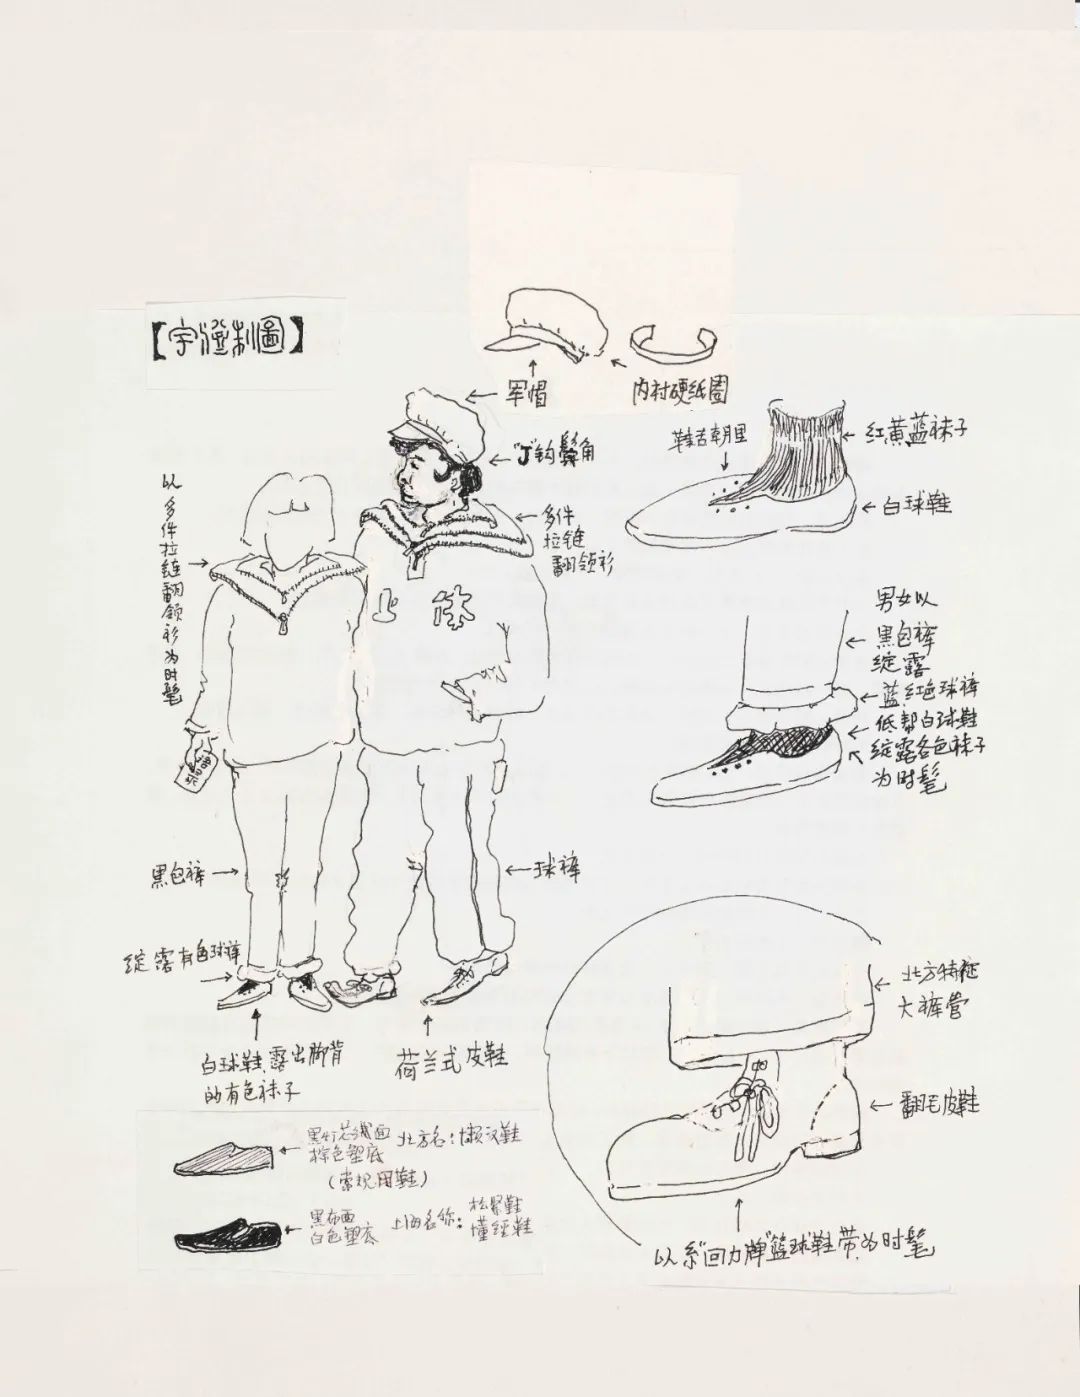 【宇澄制圖】
军帽
内衬硬纸圈
"J"钩鬓角
多件
拉链
翻领衫
以多件拉链翻领衫为时髦
鞋舌朝里
红黄蓝袜子
白球鞋
男女以
黑包裤
绽露
蓝红色球裤
低帮白球鞋
绽露各色袜子
为时髦
黑包裤
球裤
绽露有色球裤
白球鞋,露出脚背
的有色袜子
荷兰式皮鞋
北方特征
大裤管
翻毛皮鞋
以系"回力牌"篮球鞋带为时髦
棕色塑底
(常规用鞋)
北方名:懒汉鞋
黑布面
白色塑底
上海名称:松紧鞋
懂经鞋